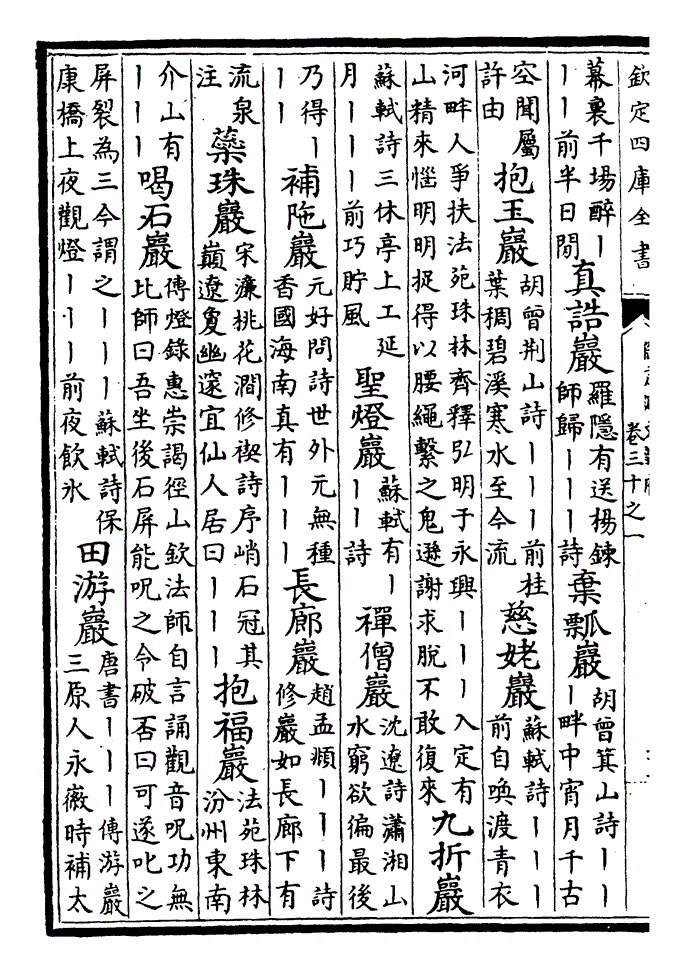 欽定四庫全書
卷三十之一
幕裏千場醉丨
丨丨前半日閒
真誥巖
羅隱有送楊鍊
師歸丨丨丨詩
棄瓢巖
胡曾箕山詩丨丨
丨畔中宵月千古
空聞屬
許由
抱玉巖
胡曾荆山詩丨丨丨前桂
葉稠碧溪寒水至今流
慈姥巖
蘇軾詩丨丨丨
前自喚渡青衣
河畔人爭扶法苑珠林齊釋弘明于永興丨丨丨入定有
山精來惱明明捉得以腰繩繫之鬼遜謝求脱不敢復來
九折巖
蘇軾詩三休亭上工延
月丨丨丨前巧貯風
聖燈巖
蘇軾有丨
丨丨詩
禪僧巖
沈遼詩瀟湘山
水窮欲徧最後
乃得丨
丨丨
補陁巖
元好問詩世外元無種
香國海南真有丨丨丨
長廊巖
趙孟頫丨丨丨詩
修巖如長廊下有
流泉
注
蘂珠巖
宋濂桃花澗修禊詩序峭石冠其
巔遼夐幽邃宜仙人居曰丨丨丨
抱福巖
法苑珠林
汾州東南
介山有
丨丨丨
喝石巖
傳燈錄惠崇謁徑山欽法師自言誦觀音呪功無
比師曰吾坐後石屏能呪之令破否曰可遂叱之
屏裂為三今謂之丨丨丨蘇軾詩保
康橋上夜觀燈丨丨丨前夜飲氷
田游巖
唐書丨丨丨傳游巖
三原人永徽時補太